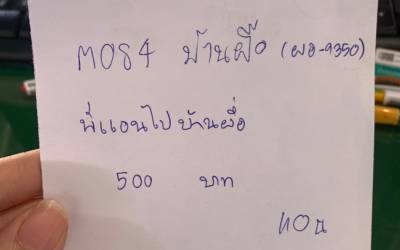 MOS4 บ้านผือ (ผอ-9350)
พี่แอนไปบ้านผือ
500 บาท
แอน